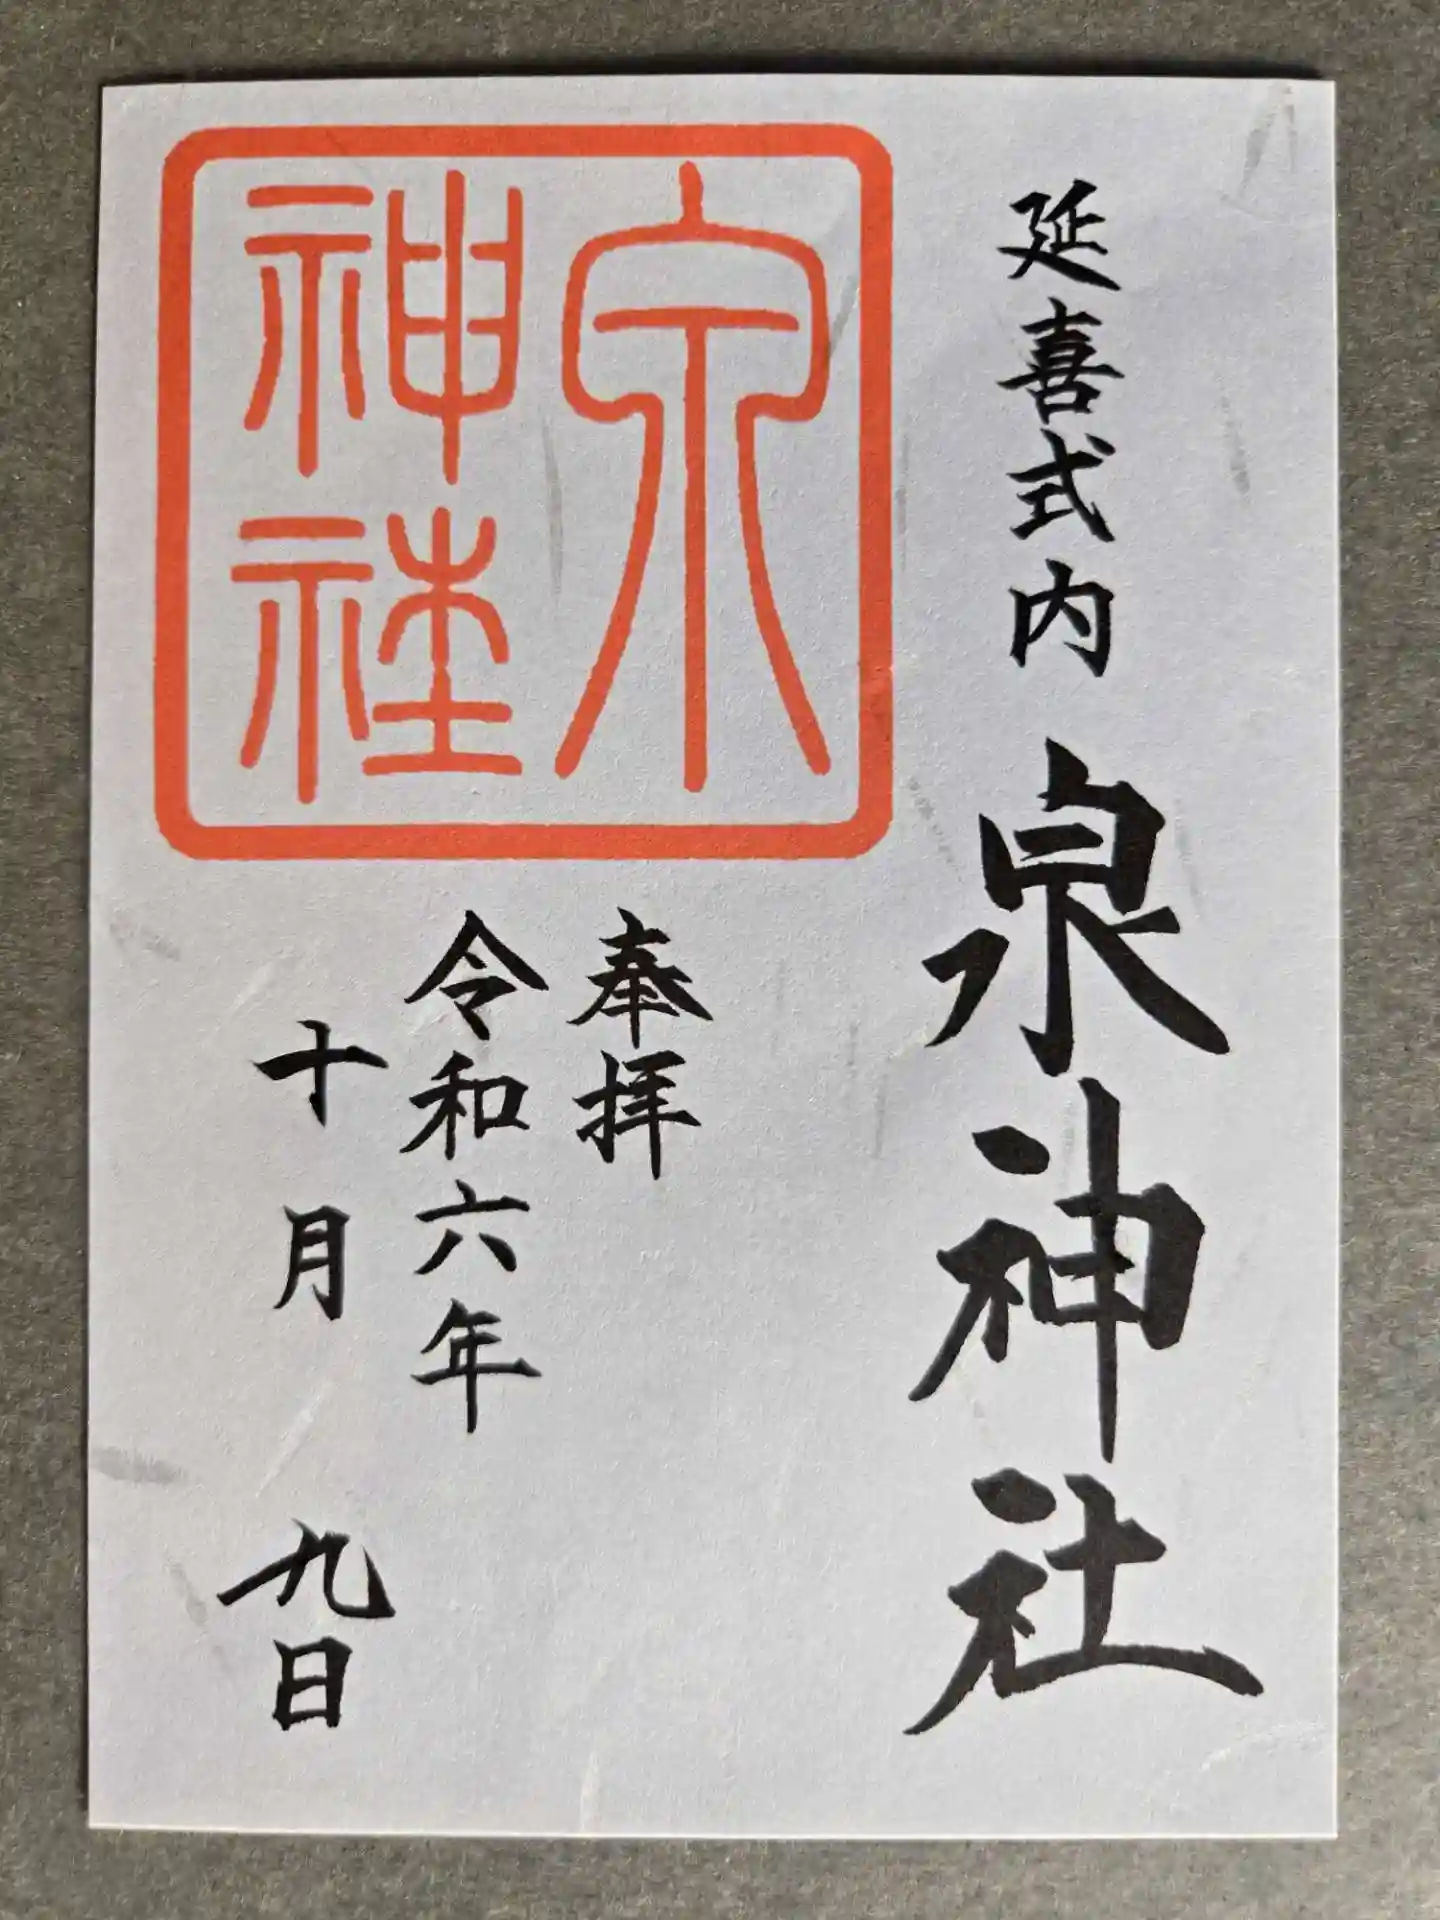 延喜式内 泉神社
泉
神社
奉拝
令和六年
十月 九日